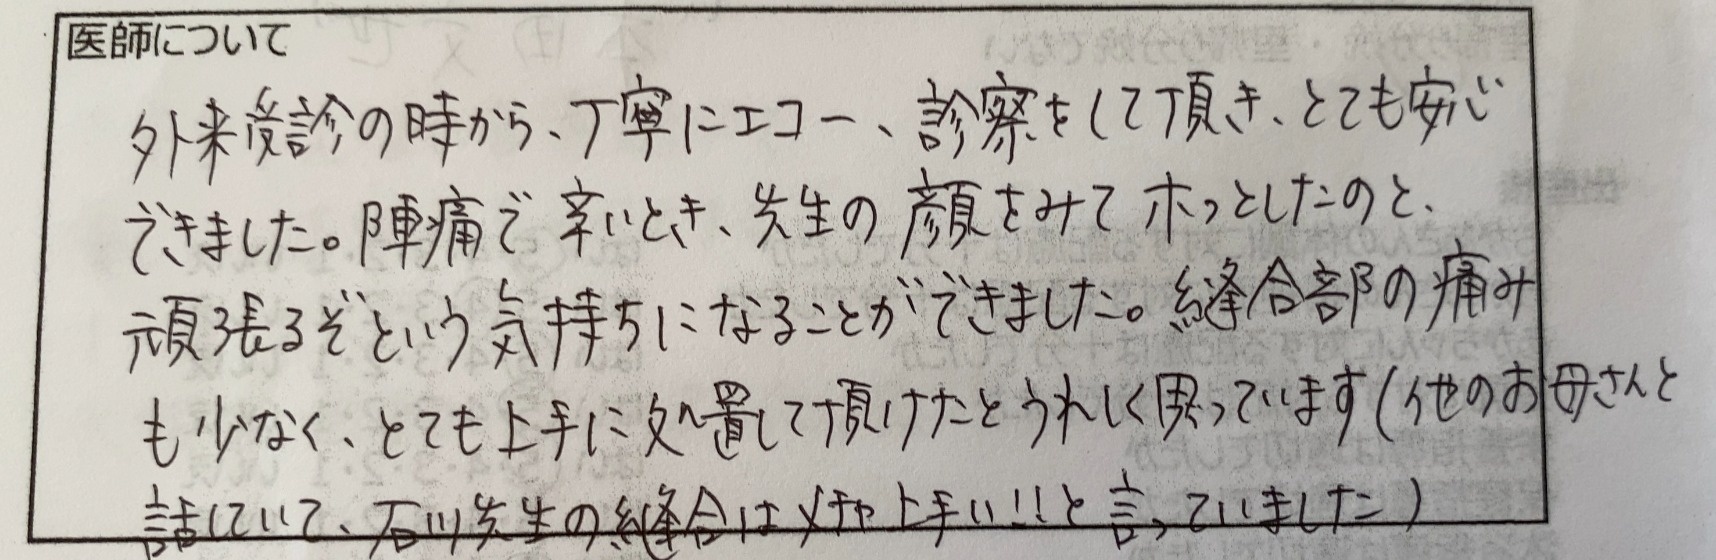 医師について
外来受診の時から、丁寧にエコー、診察をして頂き、とても安心
できました。陣痛で辛いとき、先生の顔をみてホッとしたのと、
頑張るぞという気持ちになることができました。縫合部の痛み
も少なく、とても上手に処置して頂けたとうれしく思っています(他のお母さんと
話していて、石川先生の縫合はメチャ上手い!!と言っていました)